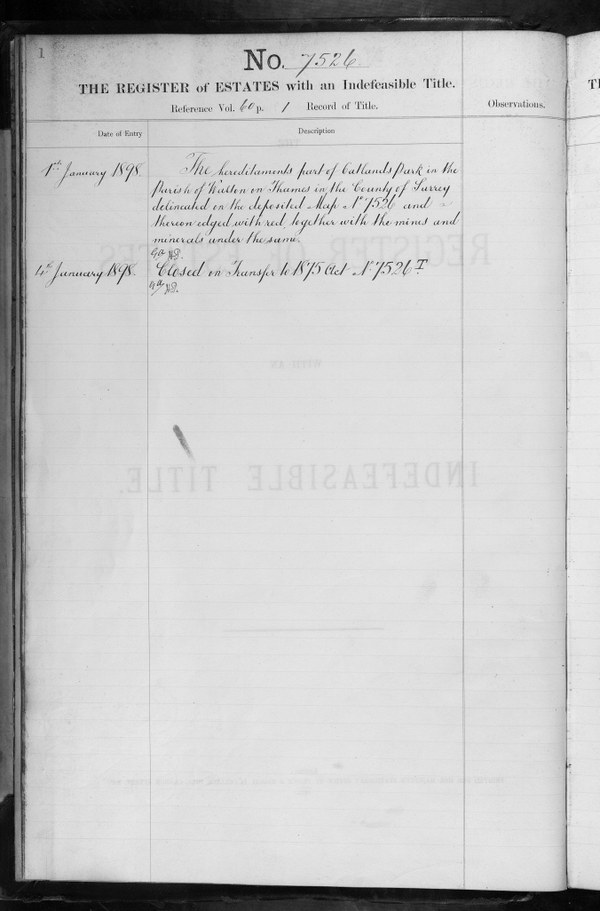 1
No. 7526
THE REGISTER of ESTATES with an Indefeasible Title.
Reference Vol. 60 p. 1 Record of Title.
Observations.
Date of Entry
Description
1st January 1898.
The hereditaments part of Oatlands Park in the
Parish of Walton on Thames in the County of Surrey
delineated on the deposited Map No 7526 and
thereon edged with red together with the mines and
minerals under the same.
4th January 1898.
Closed on Transfer to 1875 Act No 7526 T.
REGISTER
INDEFEASIBLE TITLE.